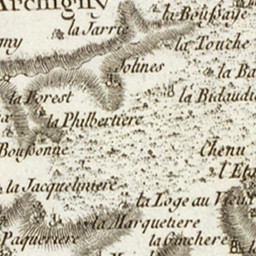 Archigny
la Boussaye
la Jarrie
la Touche
gny
Jolines
la Ba
la Forest
la Bidaudi
la Philbertiere
Boussonne
Chenu
l'Eta
la Jacqueliniere
la Loge au Vieux
la Marquetiere
Paqueriere
la Gincherè